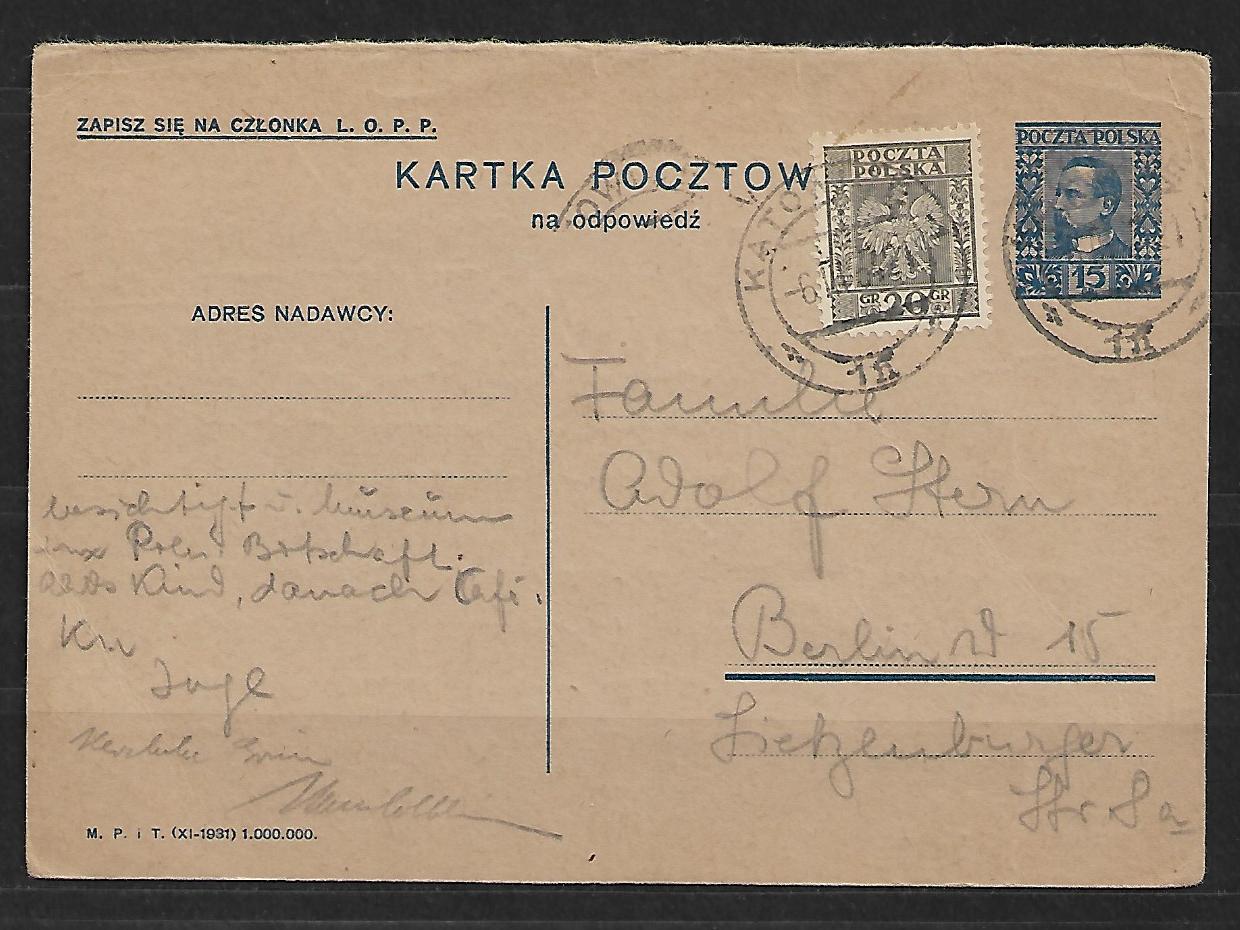 ZAPISZ SIĘ NA CZŁONKA L. O. P. P.
KARTKA POCZTOW
na odpowiedź
POCZTA POLSKA
GR 20 GR
POCZTA POLSKA
15
KATO
1n
1n
ADRES NADAWCY:
besichtigt u. Museum
Poln. Botschaft.
Kind, danach Café.
Familie
Adolf Stern
Berlin W 15
Lietzenburger
Str. 8a
M. P. i T. (XI-1931) 1.000.000.